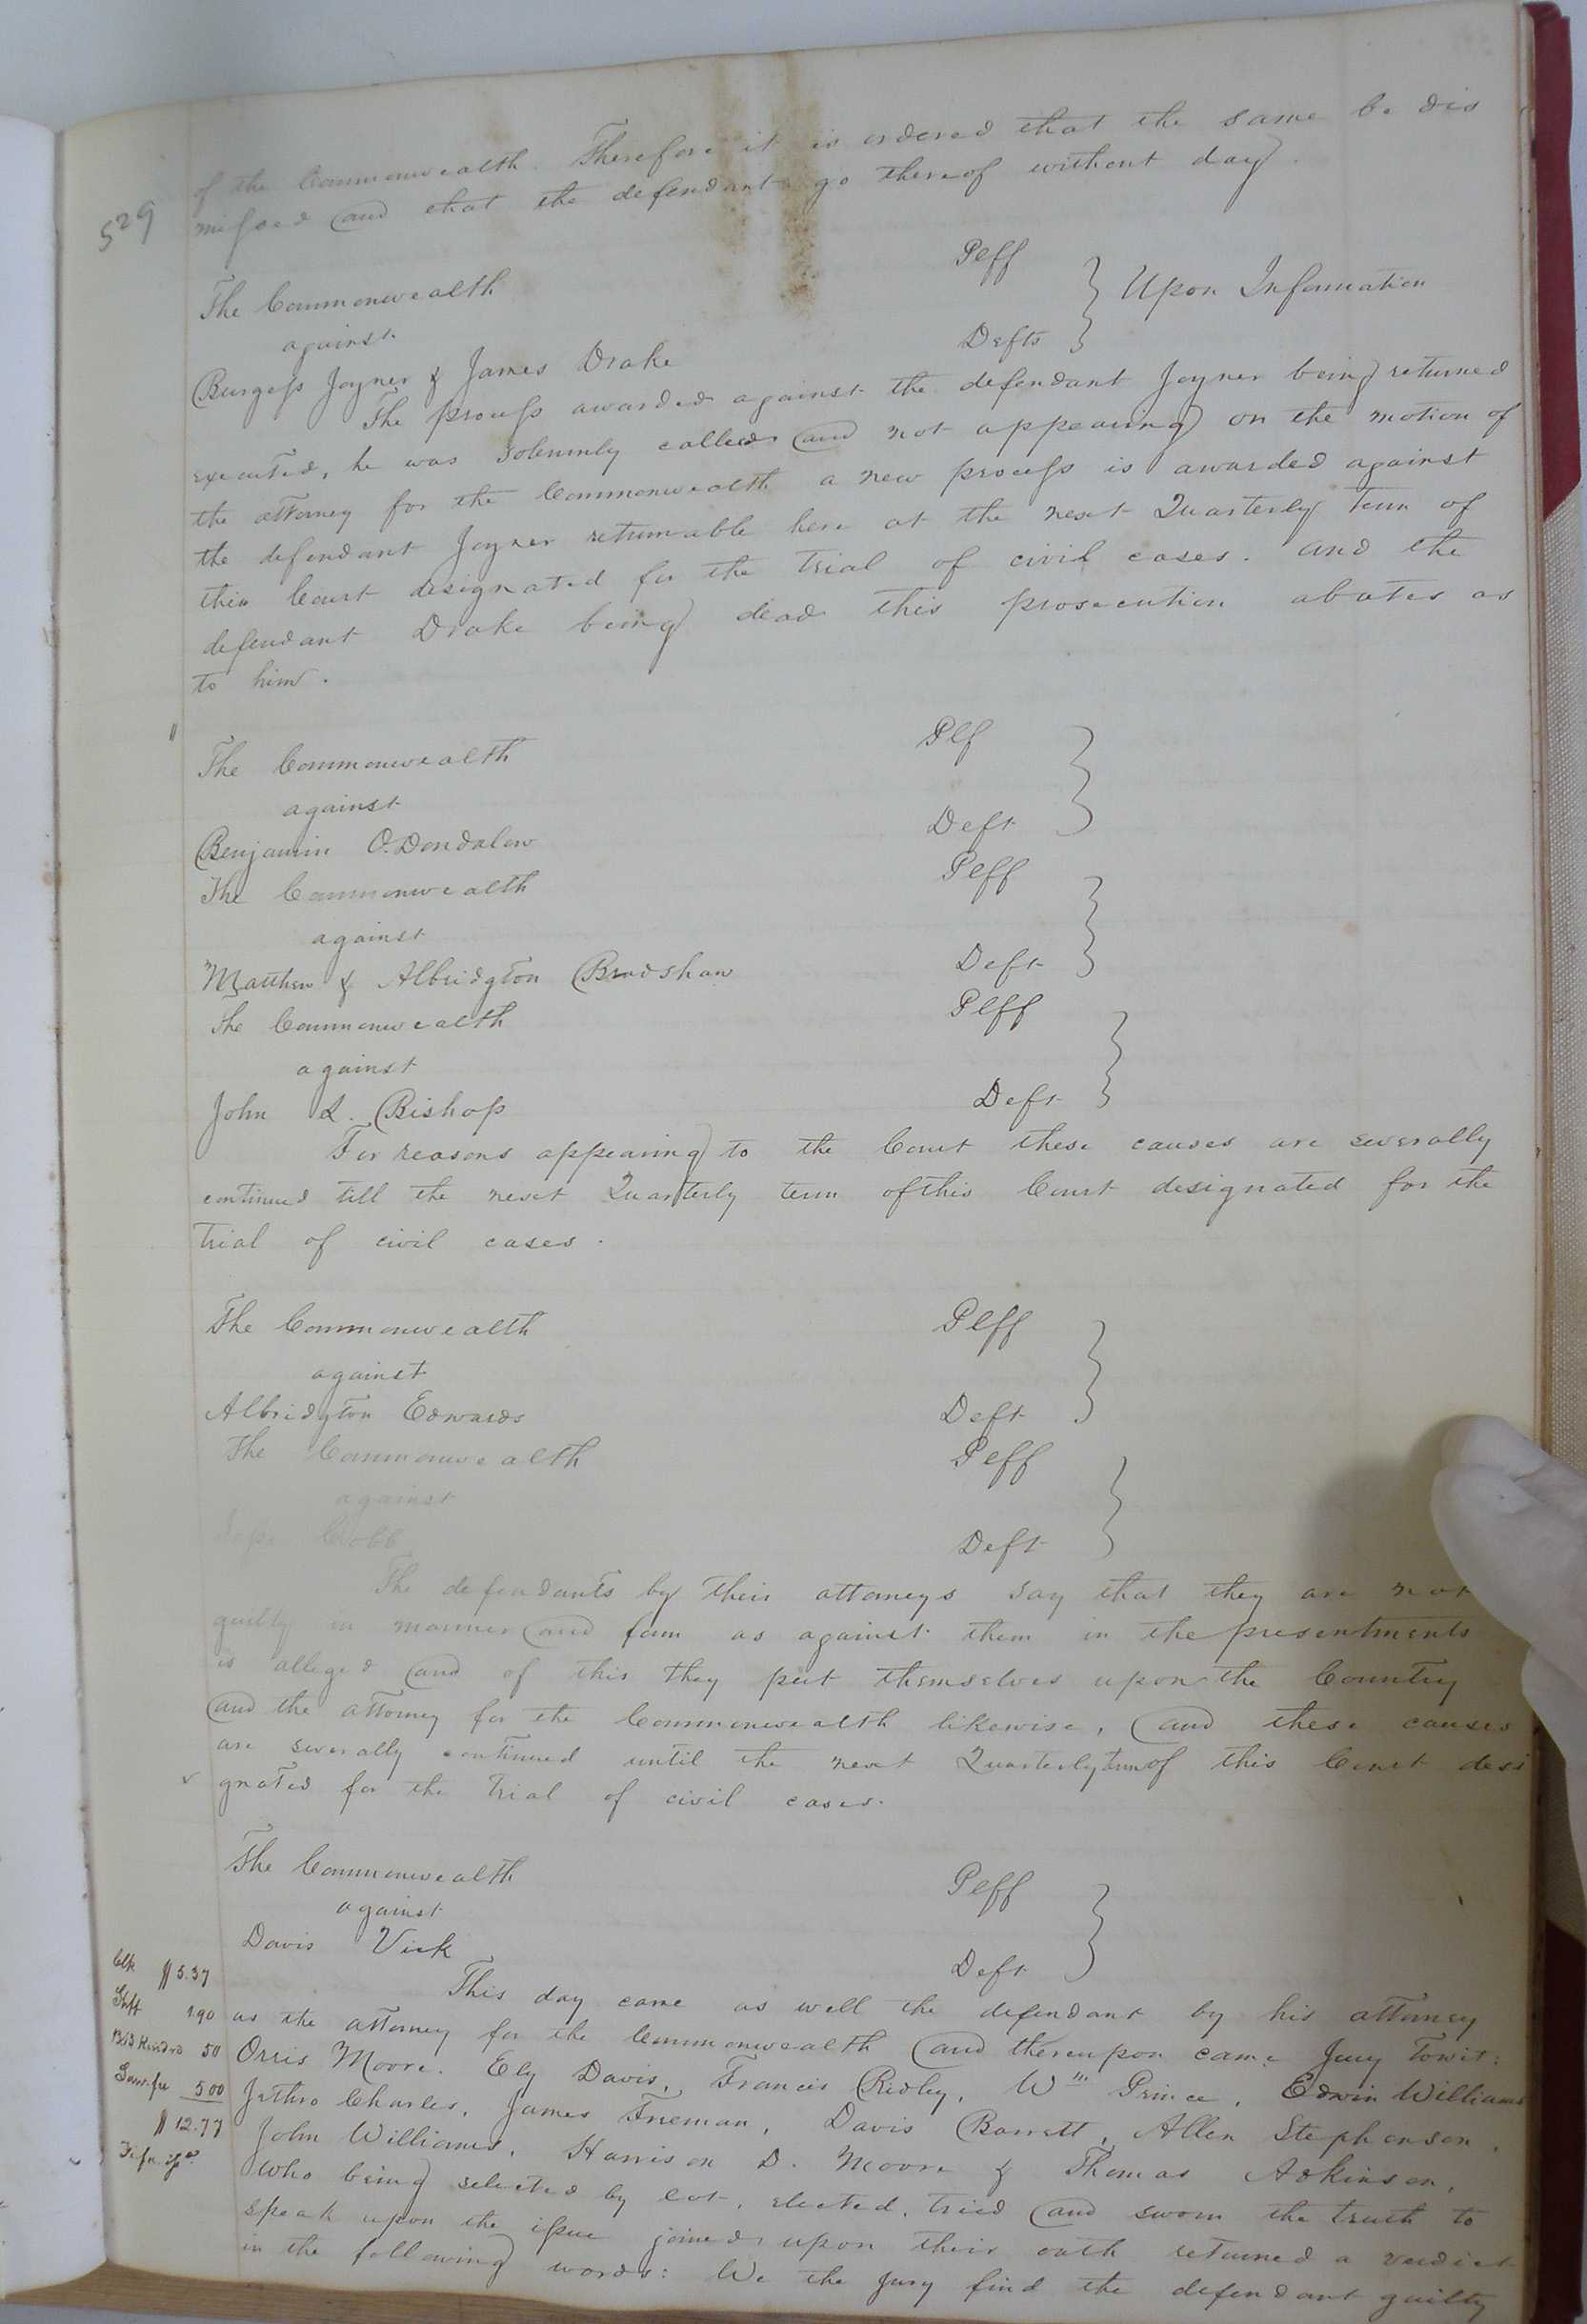 of the Commonwealth. Therefore it is ordered that the same be dis
missed and that the defendant go thereof without day.
529
The Commonwealth Plff
against } Upon Information
Burgess Joyner & James Drake Defts
The process awarded against the defendant Joyner being returned
executed, he was solemnly called and not appearing on the motion of
the attorney for the Commonwealth a new process is awarded against
the defendant Joyner returnable here at the next Quarterly term of
this Court designated for the trial of civil cases. and the
defendant Drake being dead this prosecution abates as
to him.
"
The Commonwealth Plf
against }
Benjamin O. Dondalow Deft
The Commonwealth Plff
against }
Matthew & Albridgton Bradshaw Deft
The Commonwealth Plff
against }
John L. Bishop Deft
For reasons appearing to the Court these causes are severally
continued till the next Quarterly term of this Court designated for the
trial of civil cases.
The Commonwealth Plff
against }
Albridgton Edwards Deft
The Commonwealth Plff
against }
Cobb Deft
The defendants by their attorneys say that they are not
guilty in manner and form as against them in the presentments
is alleged and of this they put themselves upon the Country
and the attorney for the Commonwealth likewise, and these causes
are severally continued until the next Quarterly term of this Court desi
gnated for the trial of civil cases.
The Commonwealth Plff
against }
Davis Vick Deft
Clk $5.37
Shff 1.90
50
Law fee 5.00
$12.77
This day came as well the defendant by his attorney
as the attorney for the Commonwealth and thereupon came Jury Towit:
Orris Moore. Ely Davis, Francis Ridley, Wm Prince, Edwin Williams
Jethro Charles, James Freeman, Davis Barrett, Allen Stephenson,
John Williams, Harrison D. Moore & Thomas Adkinson,
who being selected by lot, elected, tried and sworn the truth to
speak upon the issue joined upon their oath returned a verdict
in the following words: We the Jury find the defendant guilty